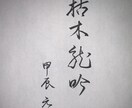 枯木龍吟
甲辰元